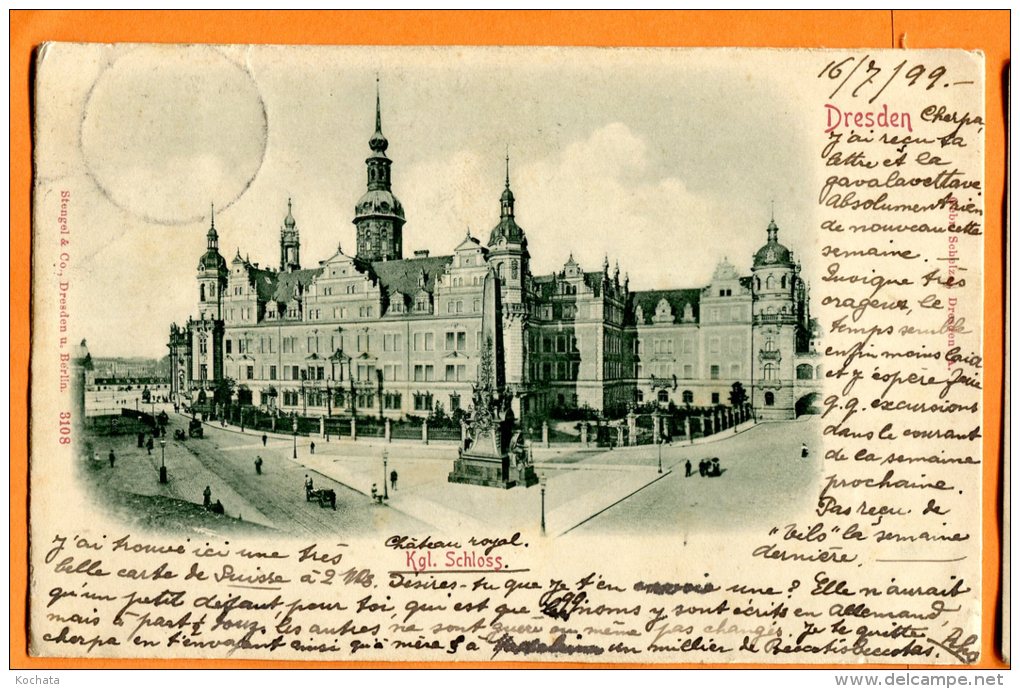 16/7/99.-
Dresden
Cherpa,
J'ai reçu ta
lettre et la
gavalavettave
Absolument rien
de nouveau cette
semaine. -
Quoique très
orageux, le
temps semble
enfin moins laid
et j'espère faire
q.q. excursions
dans le courant
de la semaine
prochaine.
Pas reçu de
"Vils" la semaine
dernière
Stengel & Co., Dresden u. Berlin. 3108
Château royal.
Kgl. Schloss.
J'ai trouvé ici une très
belle carte de Suisse à 2 Désires-tu que je t'en envoie une? Elle n'aurait
qu'un petit défaut pour toi, qui est que les noms y sont écrits en allemand,
mais à part ça tous les autres ne sont guère ou même pas changés. Je te quitte
cherpa en t'envoyant ainsi qu'à mère & à un millier de
Kochata
delcampe.net